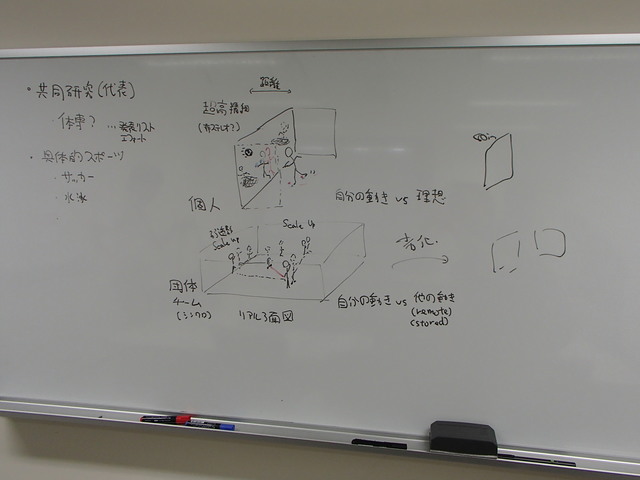 ・共同研究(代表)
・体専? …発表リスト
エフォート
・具体的スポーツ
・サッカー
・水泳
距離
超高精細
個人
自分の動き vs 理想
Scale up
Scale up
団体
チーム
(シンクロ)
リアル3面図
自分の動き vs 他の動き
(remote)
(stored)
劣化